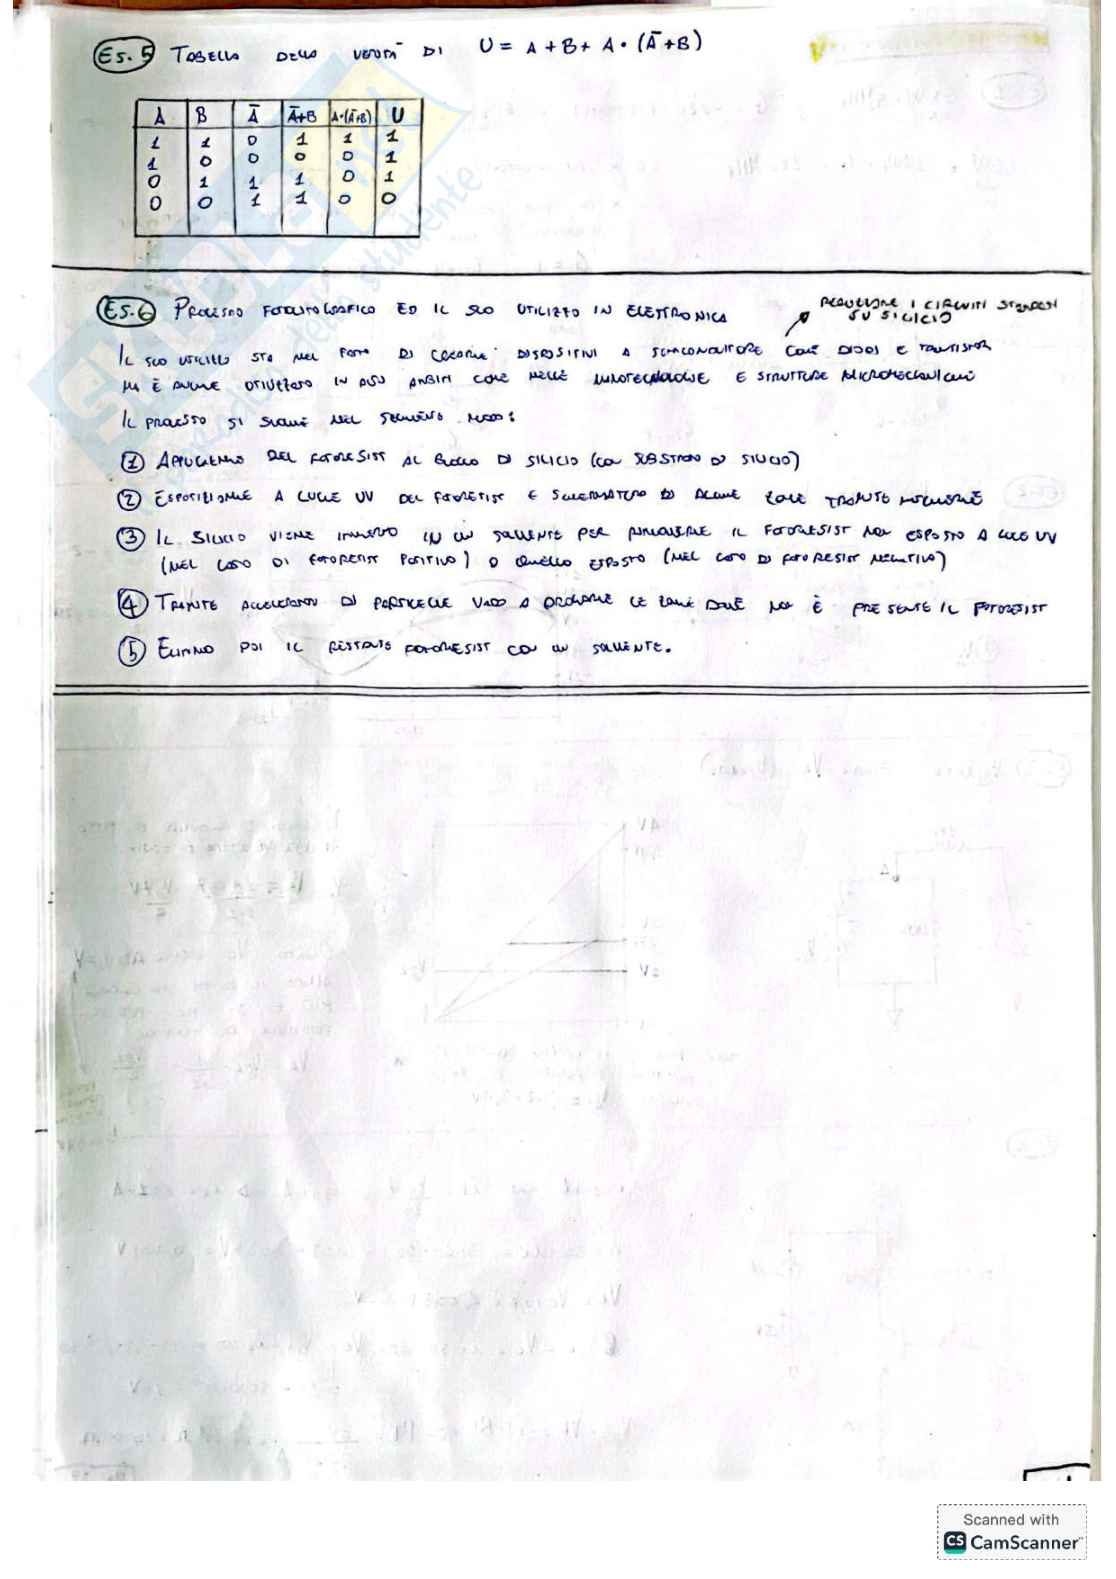 Es. 5 TABELLA DELLA VERITÀ DI U = A + B + A • (Ā + B)
A B Ā Ā+B A•(Ā+B) U
1 1 0 1 1 1
1 0 0 0 0 1
0 1 1 1 0 1
0 0 1 1 0 0
ES. 6 PROCESSO FOTOLITOGRAFICO ED IL SUO UTILIZZO IN ELETTRONICA
REALIZZARE I CIRCUITI STAMPATI
SU SILICIO
IL SUO UTILIZZO STA NEL FATTO DI CREARNE DISPOSITIVI A SEMICONDUTTORE COME DIODI E TRANSISTOR
MA È ANCHE UTILIZZATO IN ALTRI AMBITI COME NELLE NANOTECNOLOGIE E STRUTTURE MICROMECCANICHE
IL PROCESSO SI SVOLGE NEL SEGUENTE MODO:
1 DEL FOTORESIST AL BLOCCO DI SILICIO (CON SUBSTRATO DI SILICIO)
2 ESPOSIZIONE A LUCE UV DEL FOTORESIST E SCHERMATURA DI ALCUNE ZONE TRAMITE MASCHERE
3 IL SILICIO VIENE IMMERSO IN UN SOLVENTE PER RIMUOVERE IL FOTORESIST NON ESPOSTO A LUCE UV
(NEL CASO DI FOTORESIST POSITIVO) O QUELLO ESPOSTO (NEL CASO DI FOTORESIST NEGATIVO)
4 TRAMITE ACCELERATORI DI PARTICELLE VADO A DROGARE LE ZONE DOVE NON È PRESENTE IL FOTORESIST
5 ELIMINO POI IL RESTANTE FOTORESIST CON UN SOLVENTE.
Scanned with
CS CamScanner